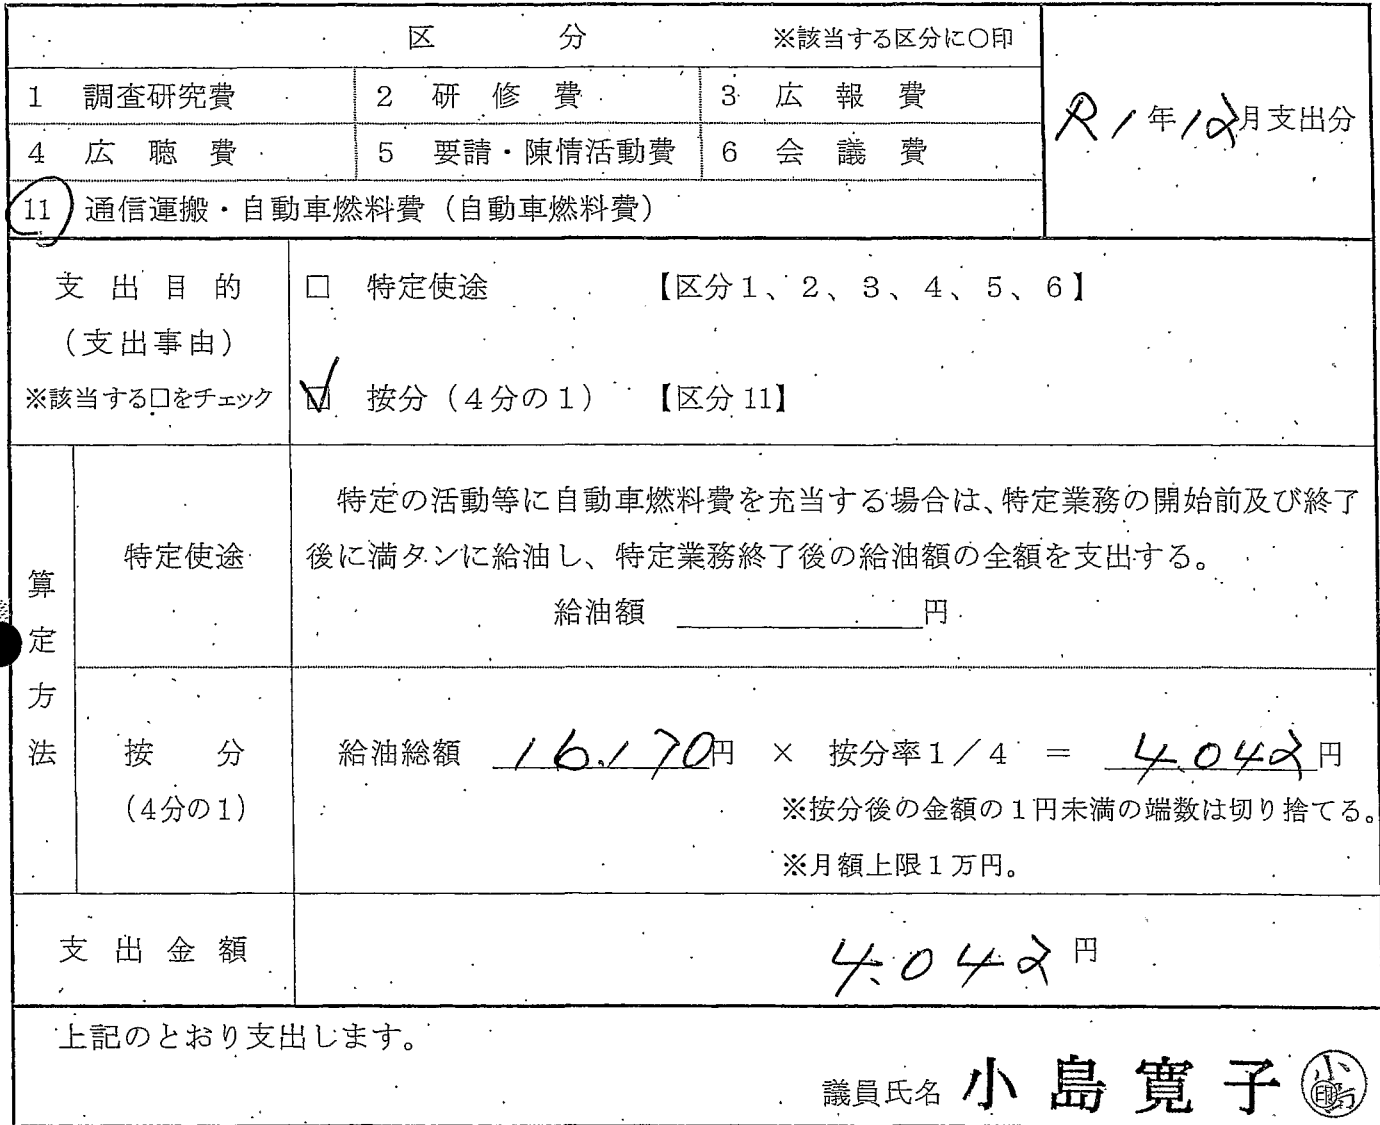 区 分 ※該当する区分に○印
1 調査研究費 2 研修費 3 広報費
R1年12月支出分
4 広聴費 5 要請・陳情活動費 6 会議費
11 通信運搬・自動車燃料費（自動車燃料費）
支出目的
（支出事由）
※該当する□をチェック
□ 特定使途 【区分1、2、3、4、5、6】
☑ 按分（4分の1） 【区分11】
算定方法
特定使途
特定の活動等に自動車燃料費を充当する場合は、特定業務の開始前及び終了
後に満タンに給油し、特定業務終了後の給油額の全額を支出する。
給油額 円
按分
（4分の1）
給油総額 16.170円 × 按分率1／4 ＝ 4.042円
※按分後の金額の1円未満の端数は切り捨てる。
※月額上限1万円。
支出金額 4.042円
上記のとおり支出します。
議員氏名 小島寛子 印